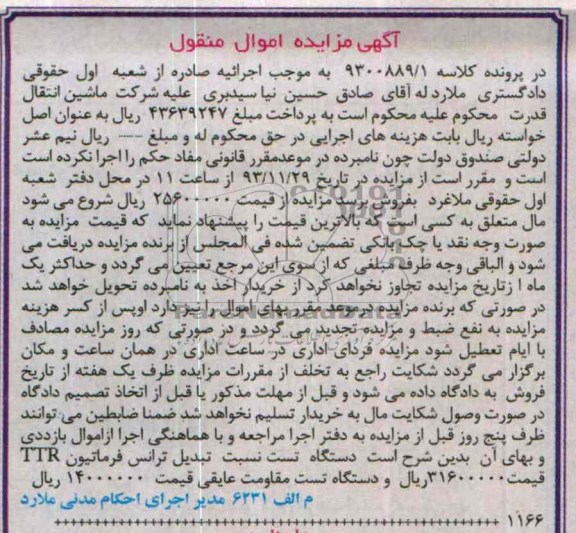 آگهی مزایده اموال منقول
در پرونده کلاسه ۹۳۰۰۸۸۹/۱ به موجب اجرائیه صادره از شعبه اول حقوقی
دادگستری ملارد له آقای صادق حسین نیا سیدبری علیه شرکت ماشین انتقال
قدرت محکوم علیه محکوم است به پرداخت مبلغ ۴۳۶۳۹۲۴۷ ریال به عنوان اصل
خواسته ریال بابت هزینه های اجرایی در حق محکوم له و مبلغ --- ریال نیم عشر
دولتی صندوق دولت چون نامبرده در موعدمقرر قانونی مفاد حکم را اجرا نکرده است
است و مقرر است از مزایده در تاریخ ۹۳/۱۱/۲۹ از ساعت ۱۱ در محل دفتر شعبه
اول حقوقی ملاغرد بفروش برسد مزایده از قیمت ۲۵۶۰۰۰۰۰ ریال شروع می شود
مال متعلق به کسی است که بالاترین قیمت را پیشنهاد نماید که قیمت مزایده به
صورت وجه نقد یا چک بانکی تضمین شده فی المجلس از برنده مزایده دریافت می
شود و الباقی وجه ظرف مبلغی که از سوی این مرجع تعیین می گردد و حداکثر یک
ماه ا زتاریخ مزایده تجاوز نخواهد کرد از خریدار اخذ به نامبرده تحویل خواهد شد
در صورتی که برنده مزایده در موعد مقرر بهای اموال را نپردازد اوپس از کسر هزینه
مزایده به نفع ضبط و مزایده تجدید می گردد و در صورتی که روز مزایده مصادف
با ایام تعطیل شود مزایده فردای اداری در ساعت اداری در همان ساعت و مکان
برگزار می گردد شکایت راجع به تخلف از مقررات مزایده ظرف یک هفته از تاریخ
فروش به دادگاه داده می شود و قبل از مهلت مذکور یا قبل از اتخاذ تصمیم دادگاه
در صورت وصول شکایت مال به خریدار تسلیم نخواهد شد ضمنا ضابطین می توانند
ظرف پنج روز قبل از مزایده به دفتر اجرا مراجعه و با هماهنگی اجرا ازاموال بازددی
و بهای آن بدین شرح است دستگاه تست نسبت تبدیل ترانس فرماتیون TTR
قیمت۳۱۶۰۰۰۰۰ریال و دستگاه تست مقاومت عایقی قیمت ۱۴۰۰۰۰۰۰ ریال
م الف ۶۲۳۱ مدیر اجرای احکام مدنی ملارد
۱۱۶۶